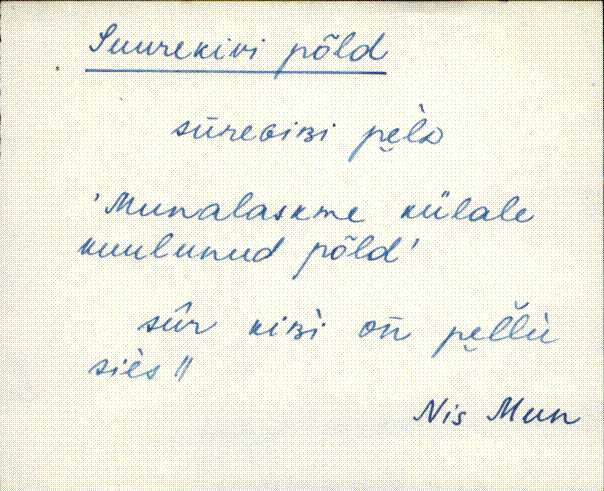 Suurekivi põld
sūreɢiʙi pe̮lᴅ
'Munalaskme külale
kuulunud põld'
sûr kiʙì oñ pe̮l̆lù
siès॥
Nis Mun